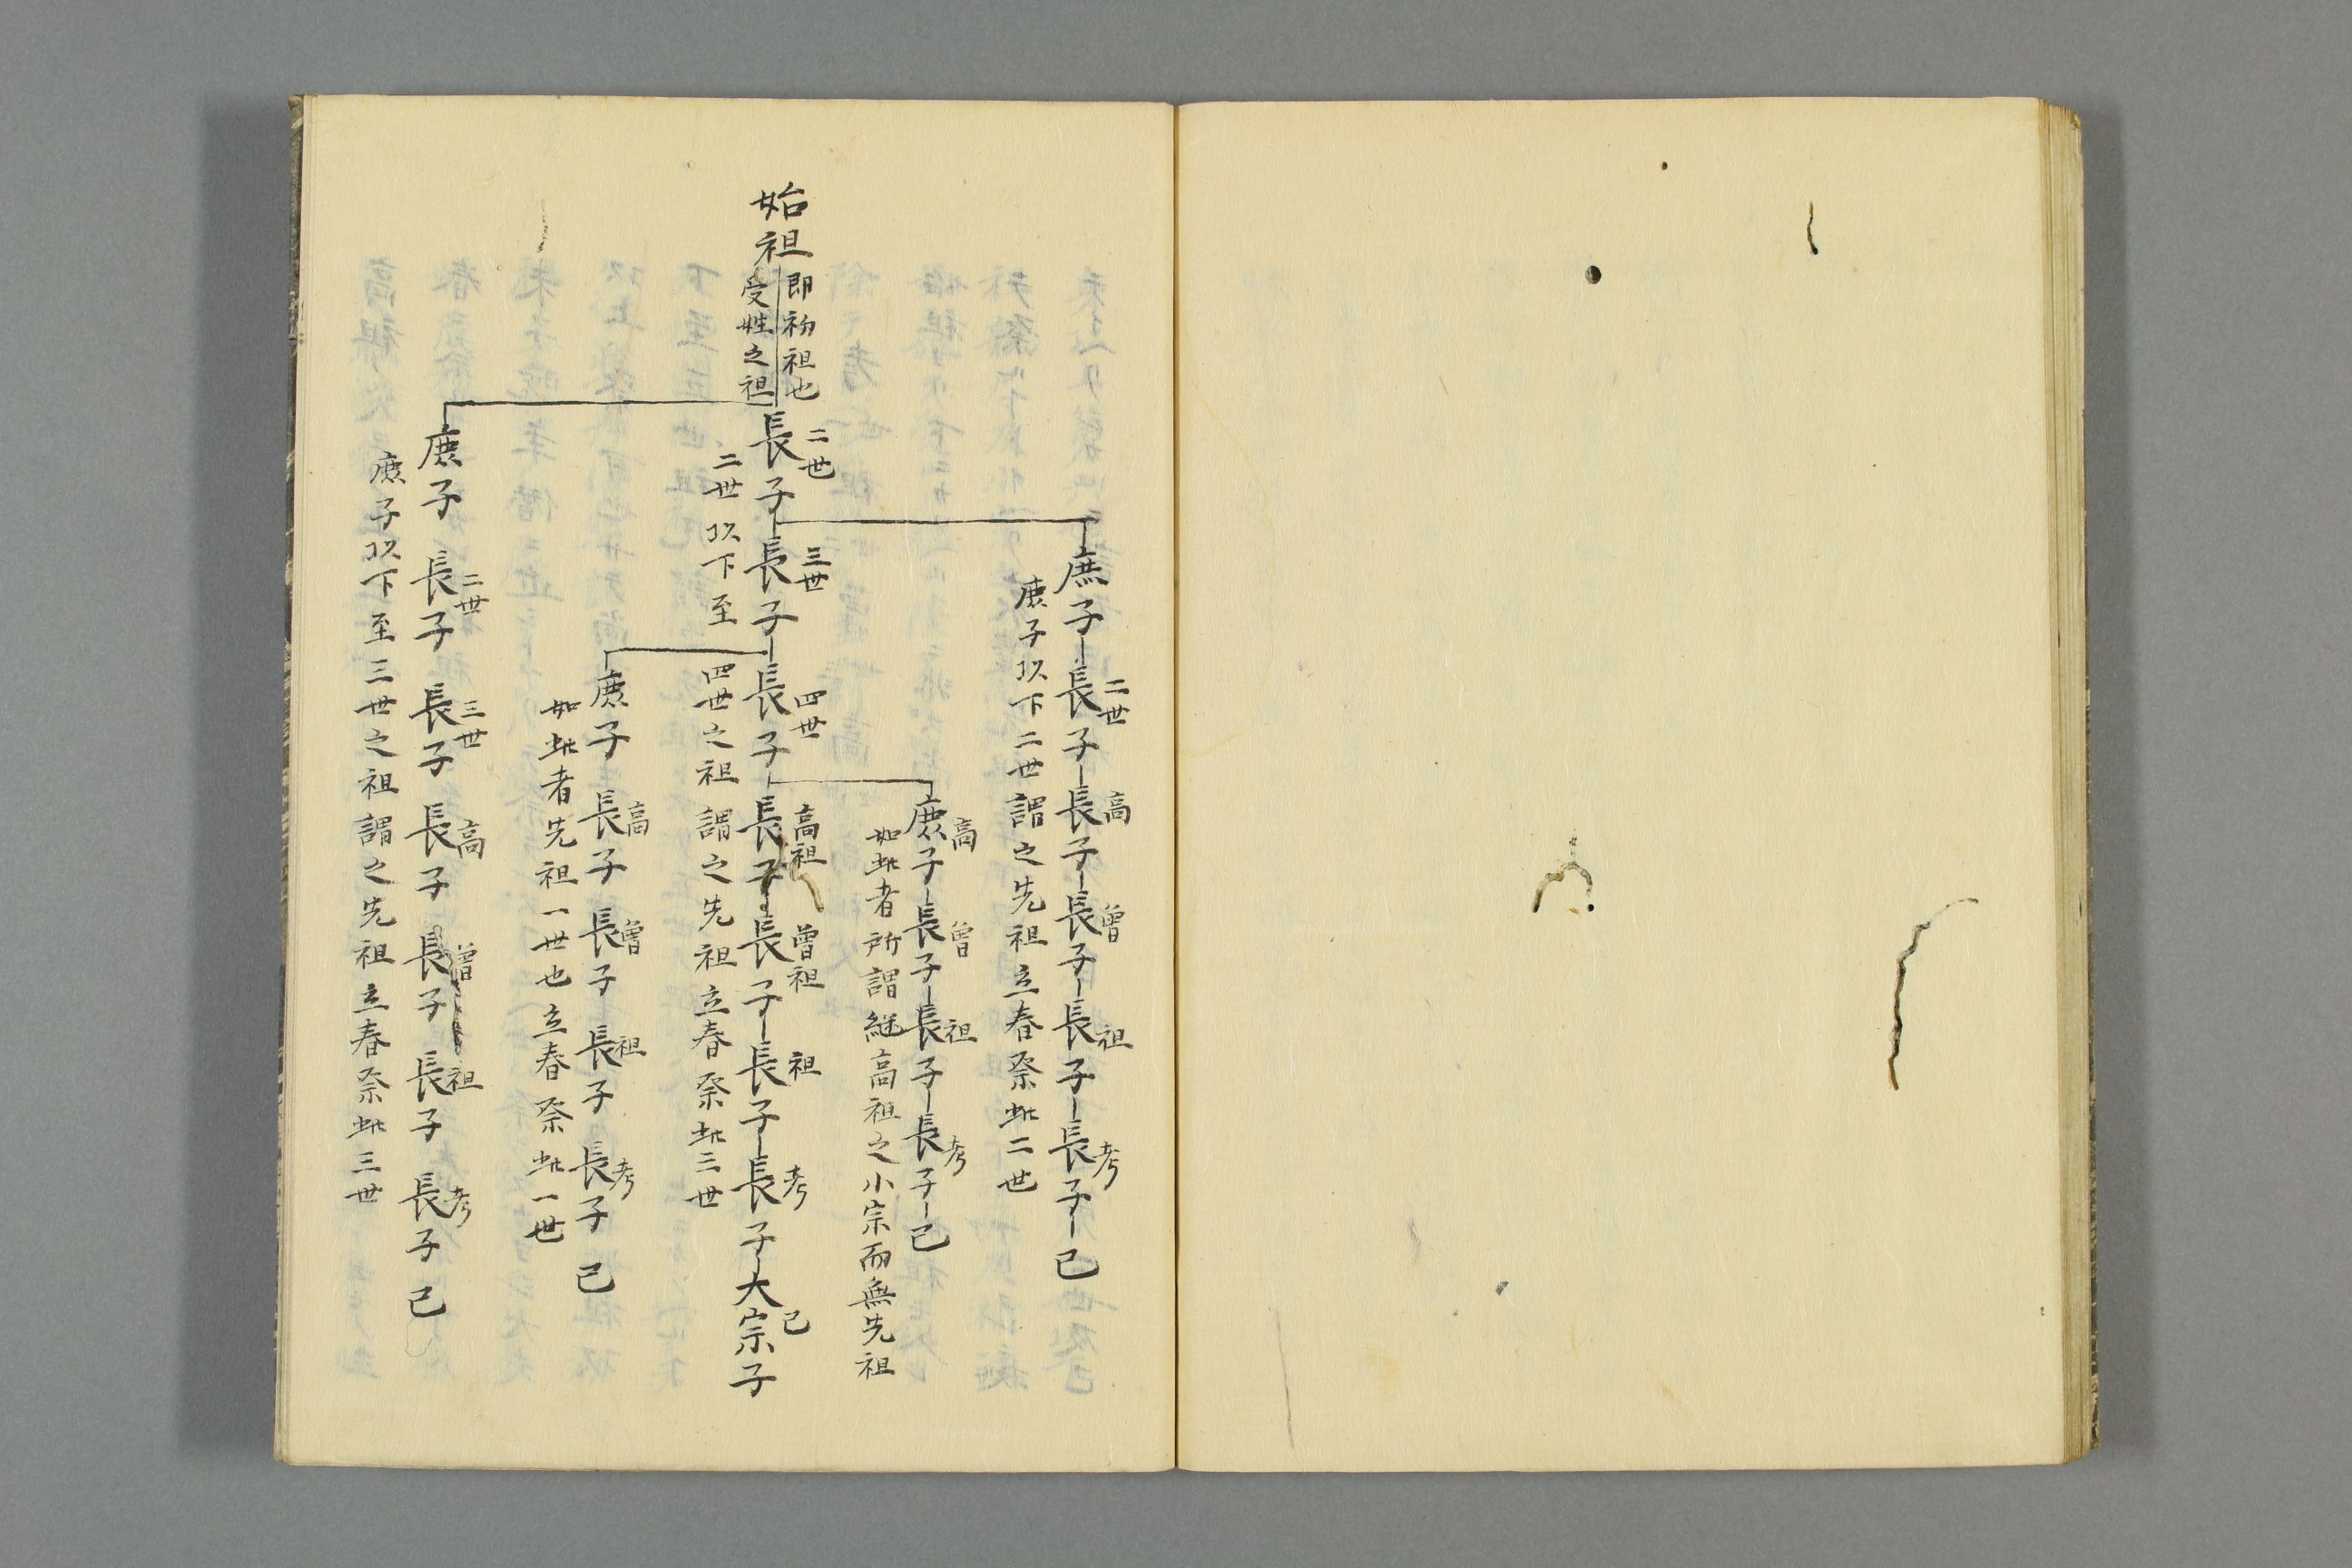 始祖
即初祖也
受姓之祖
庶子 長子 長子 長子 長子 長子 己
二世 高 曾 祖 考
庶子以下二世謂之先祖立春祭此二世
庶子 長子 長子 長子 己
高 曾 祖 考
如此者所謂継高祖之小宗而無先祖
長子 長子 長子 長子 長子 長子 長子 大宗子
二世 三世 四世 高祖 曽祖 祖 考 己
二世以下至四世之祖謂之先祖立春祭此三世
庶子 長子 長子 長子 長子 己
高 曾 祖 考
如此者先祖一世也立春祭此一世
庶子 長子 長子 長子 長子 長子 長子 己
二世 三世 高 曽 祖 考
庶子以下至三世之祖謂之先祖立春祭此三世